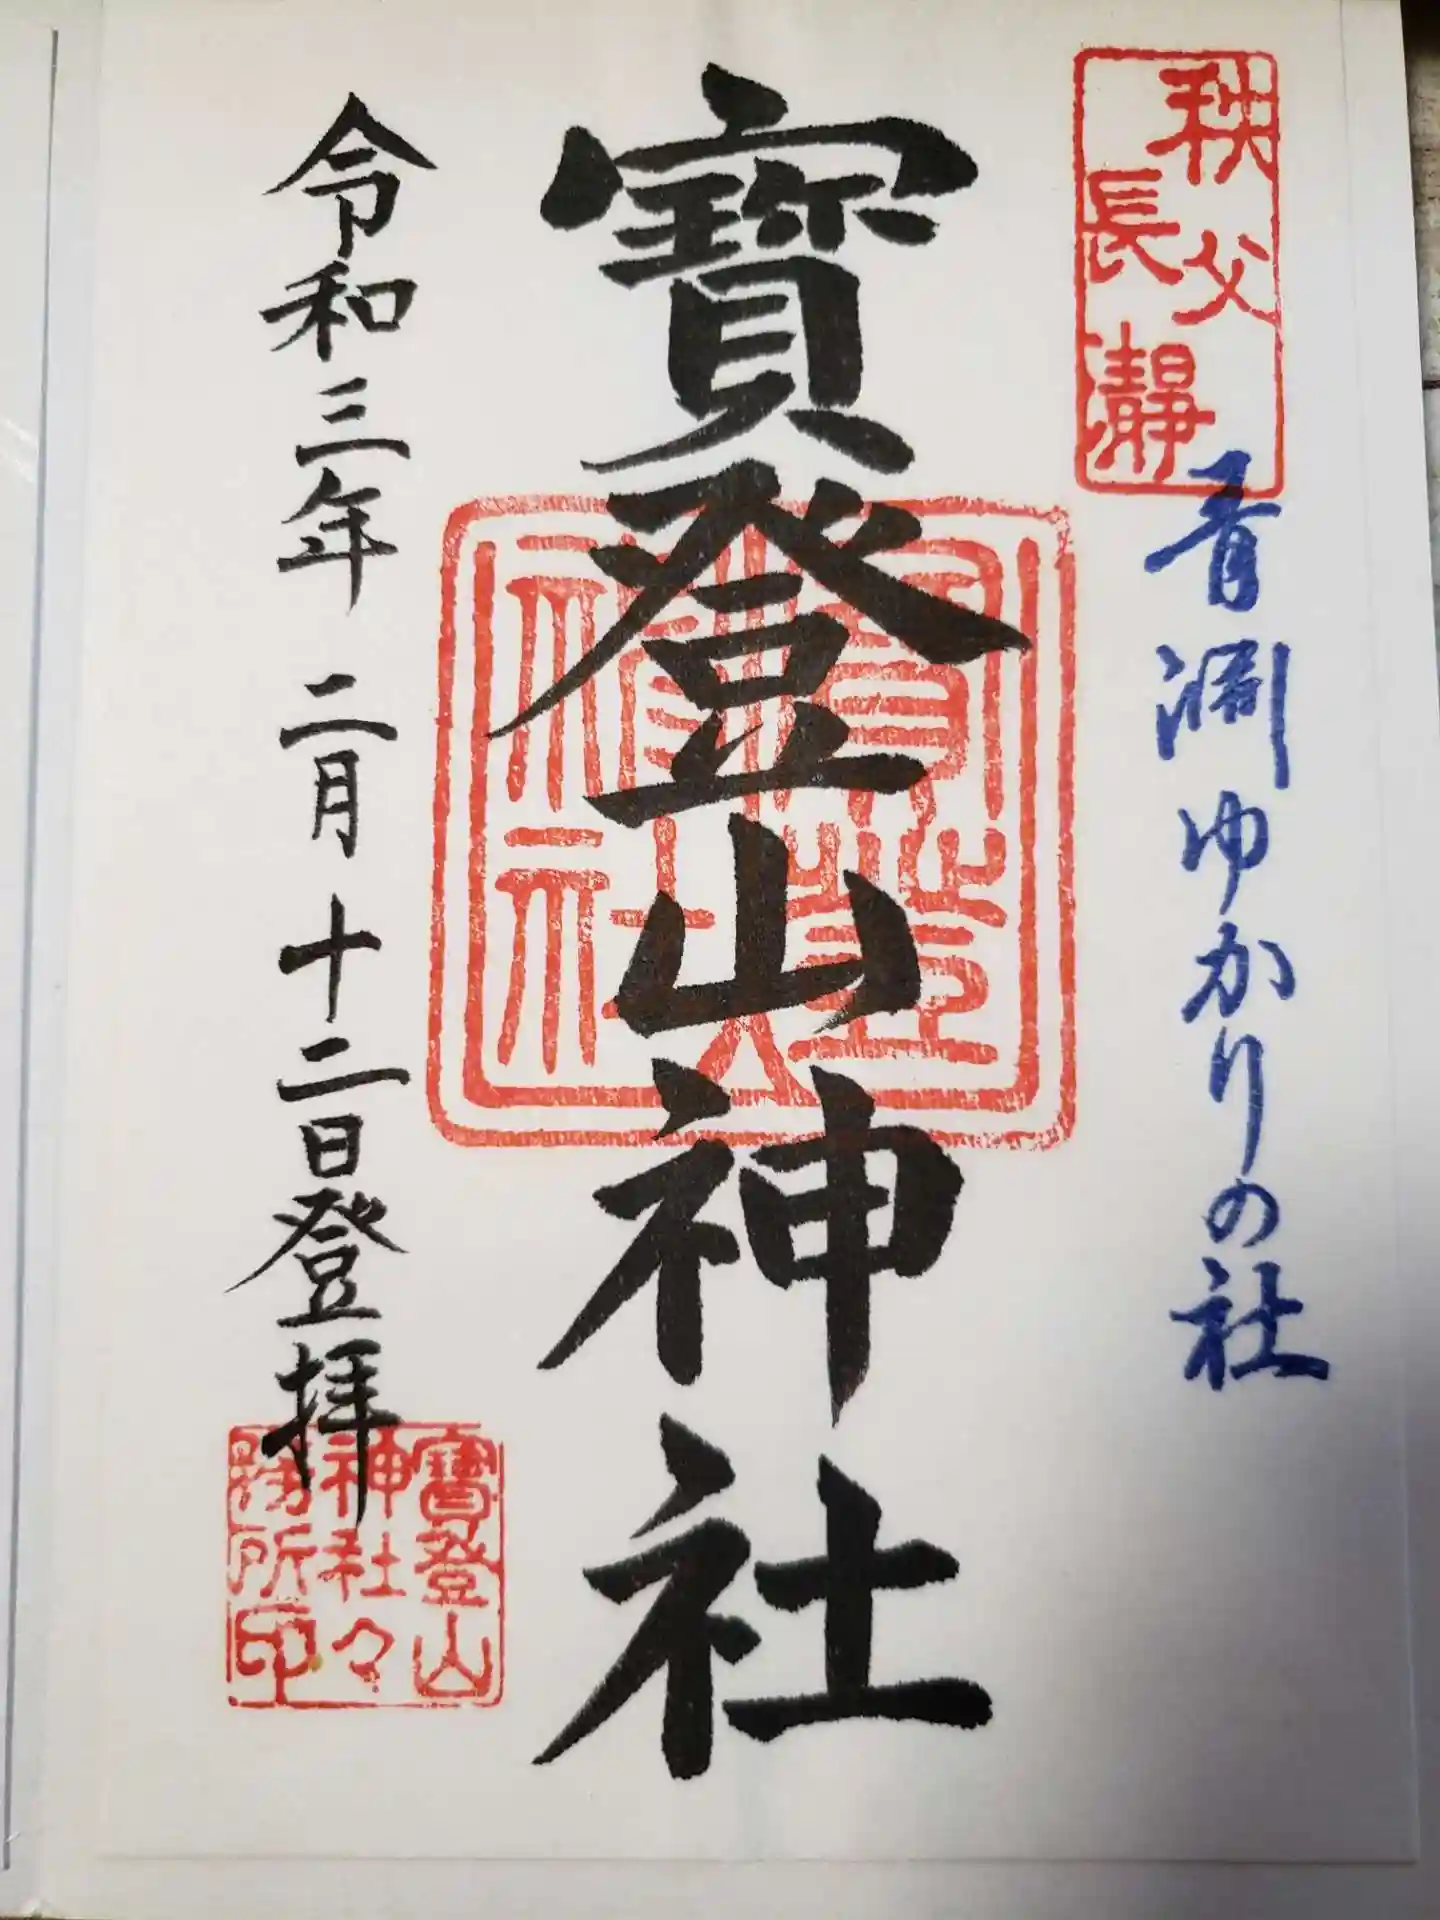 秩父
長瀞
青淵ゆかりの社
寶登山神社
寶登
神社
令和三年 二月十二日登拝
寶登山
神社々
務所印